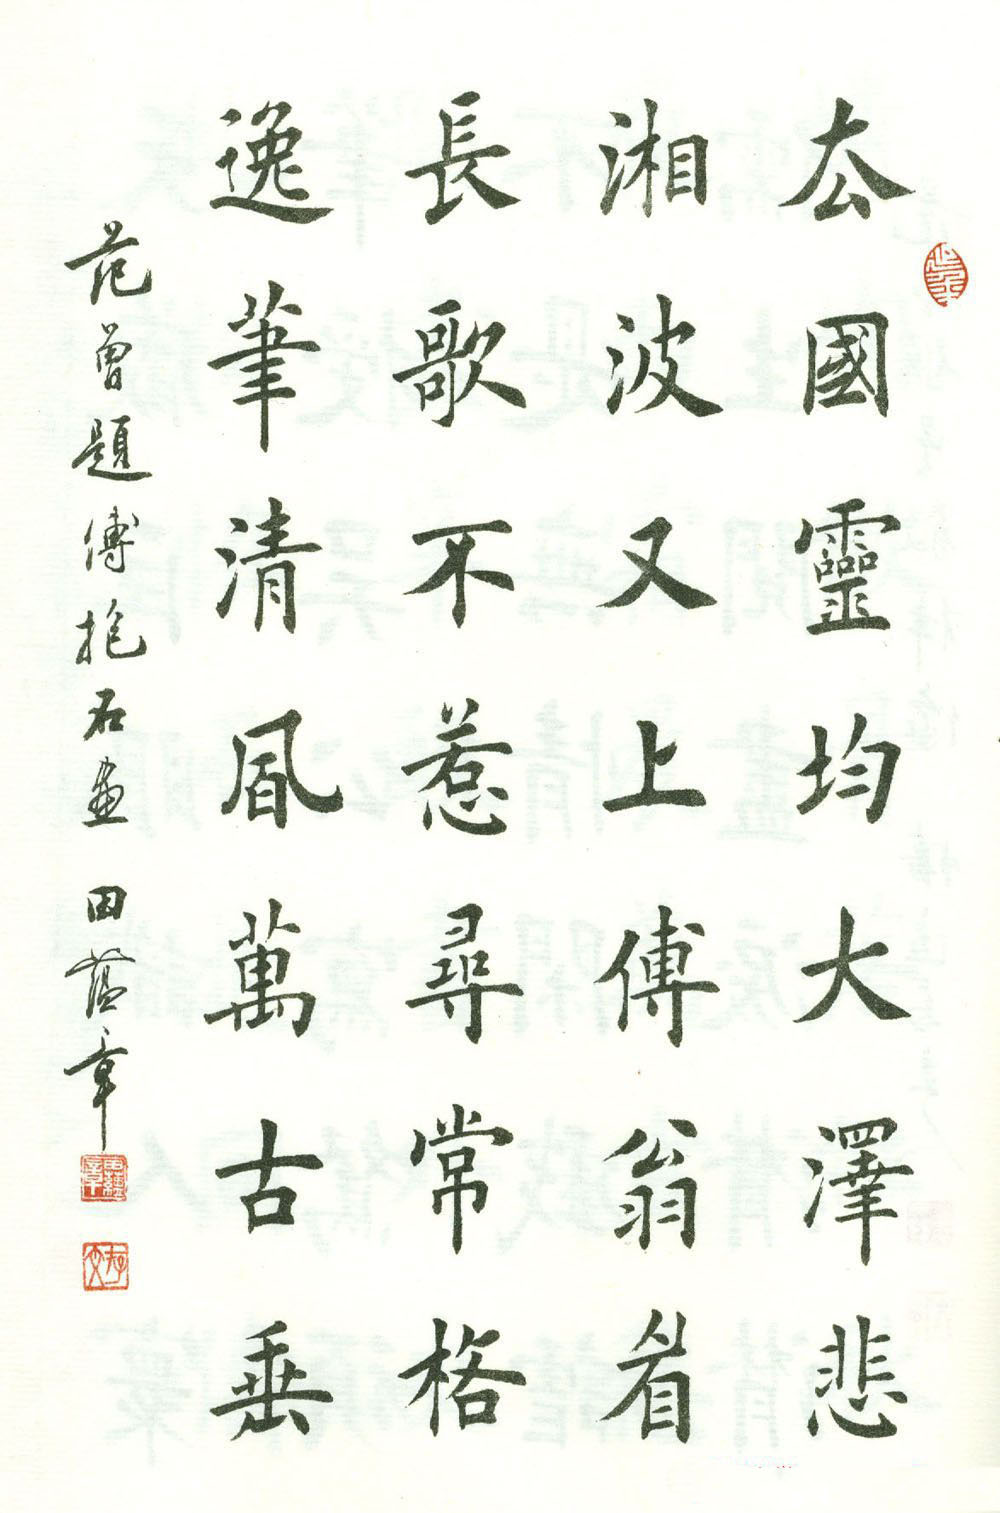 厺國靈均大澤悲
湘波又上傅翁眉
長歌不惹尋常格
逸筆清風萬古垂
范曾題傅抱石畫 田蘊章
田蘊章